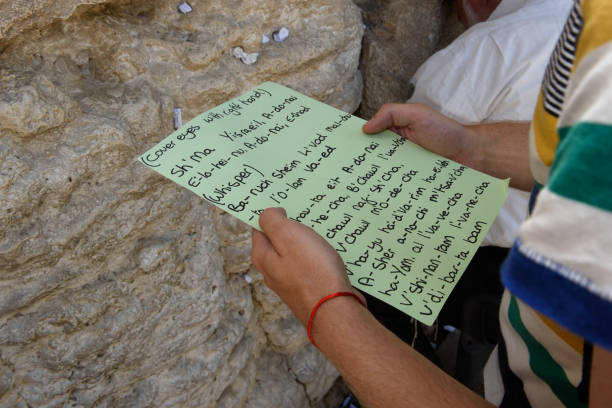 (Cover eyes with right hand)
Sh'ma Yisraeil, A-do-nai
E-lo-hei-nu, A-do-nai, Echad
(Whisper)
Ba-ruch Sheim k'vod
l'o-lam va-ed
ta eit A-do-nai
he-cha, B'chawl
chawl naf sh'cha,
V'chawl mo-de-cha
V'ha-yu ha-d'va-rim ha-ei-leh
A-Sher a-no-chi m'tzav'cha
ha-Yom al l'va-ve-cha
V'Shi-nan-tam l'va-ne-cha
V'di-bar-ta bam